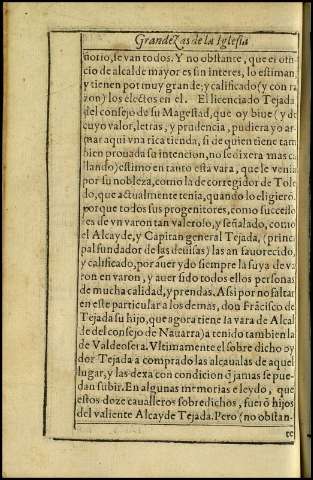 Grandezas de la Iglesia
ñorio, le van todos. Y no obstante, que el ofi-
cio de alcalde mayor es sin interes, lo estiman,
y tienen por muy grande, y calificado (y con ra
zon) los electos en el. El licenciado Tejada
del consejo de su Magestad, que oy biue (y de
cuyo valor, letras, y prudencia, pudiera yo ar-
mar aqui vna rica tienda, si de quien tiene tam
bien prouada su intencion, no se dixera mas ca
llando) estimo en tanto esta vara, que le venia
por su nobleza, como la de corregidor de Tole
do, que actualmente tenia, quando lo eligierõ.
porque todos sus progenitores, como successo
res de vn varon tan valeroso, y señalado, como
el Alcayde, y Capitan general Tejada, (princi
pal fundador de las deuisas) las an fauorecido,
y calificado, por auer ydo siempre la suya de va
ron en varon, y auer sido todos ellos personas
de mucha calidad, y prendas. Assi por no faltar
en este particular a los demas, don Frãcisco de
Tejada su hijo, que agora tiene la vara de Alcal
de del consejo de Nauarra) a tenido tambien la
de Valdeosera. Vltimamente el sobredicho oy
dor Tejada a comprado las alcaualas de aquel
lugar, y las dexa con condicion q̃ jamas se pue-
dan subir. En algunas memorias e leydo, que
estos doze caualleros sobredichos, fuerõ hijos
del valiente Alcayde Tejada. Pero (no obstan-
te